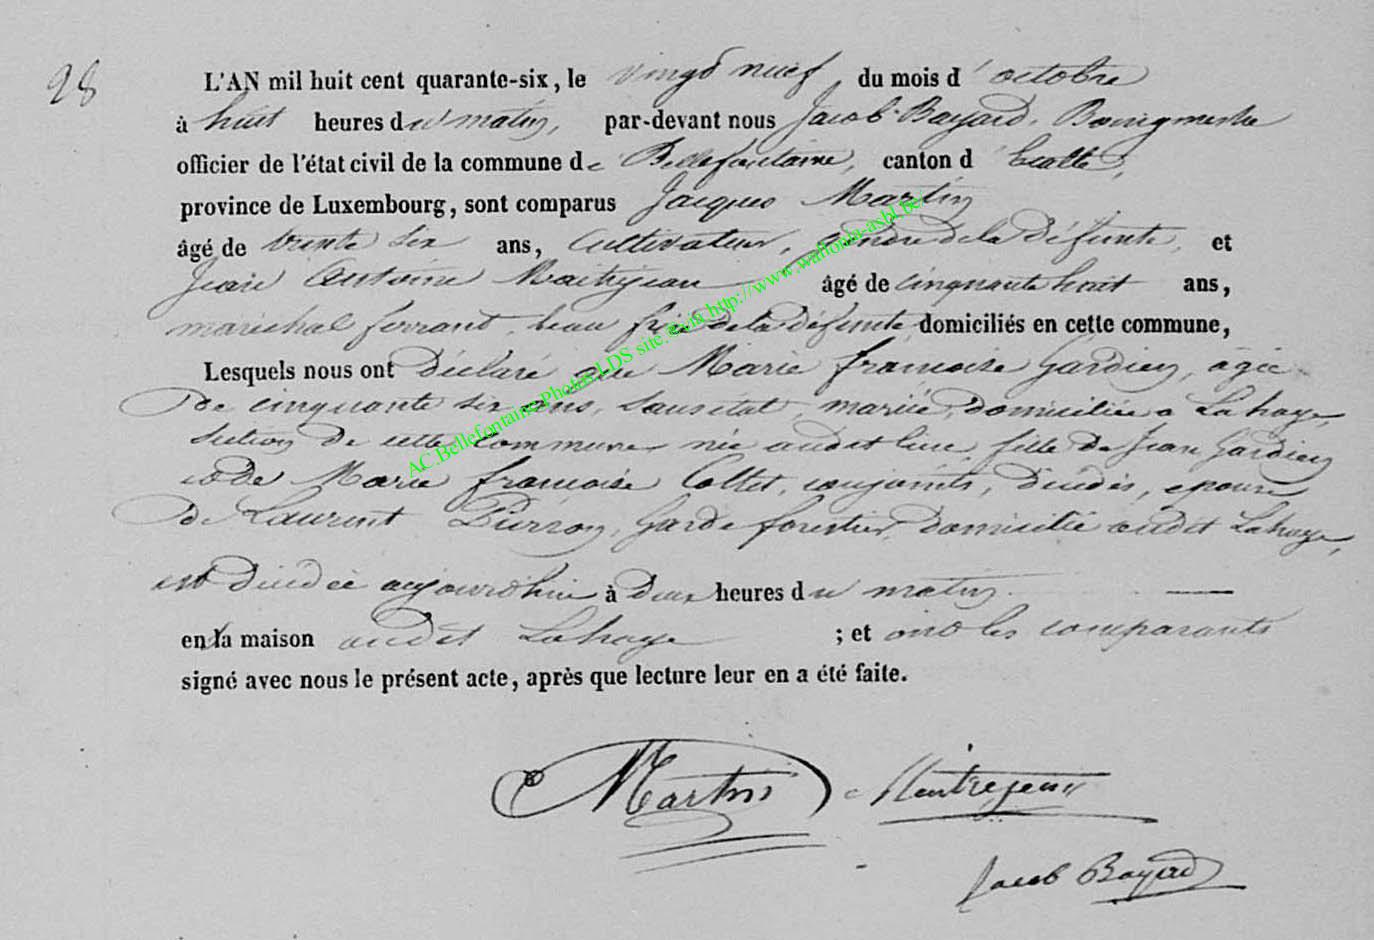 28
L'AN mil huit cent quarante-six, le vingt neuf du mois d'octobre
à huit heures du matin, par-devant nous Jacob Bayard, Bourgmestre
officier de l'état civil de la commune de Bellefontaine, canton d'Etalle,
province de Luxembourg, sont comparus Jacques Martin
âgé de trente six ans, Cultivateur, gendre de la défunte, et
Jean Antoine Maitrejean âgé de cinquante huit ans,
maréchal ferrant, beau frère de la défunte, domiciliés en cette commune,
Lesquels nous ont déclaré que Marie françoise Gardien, âgée
de cinquante six ans, Sans état mariée, domiciliée à Lahage,
section de cette commune née audit lieu, fille de Jean Gardien
et de Marie françoise Collet, conjoints, décédés, épouse
de Laurent Pierron, Garde forestier, domicilié audit Lahage,
est décédée aujourd'hui à deux heures du matin.
en la maison audit Lahage ; et ont les comparants
signé avec nous le présent acte, après que lecture leur en a été faite.
Martin Maitrejean
Jacob Bayard
AC.Bellefontaine.Photos LDS site via http://www.wallonia-asbl.be/